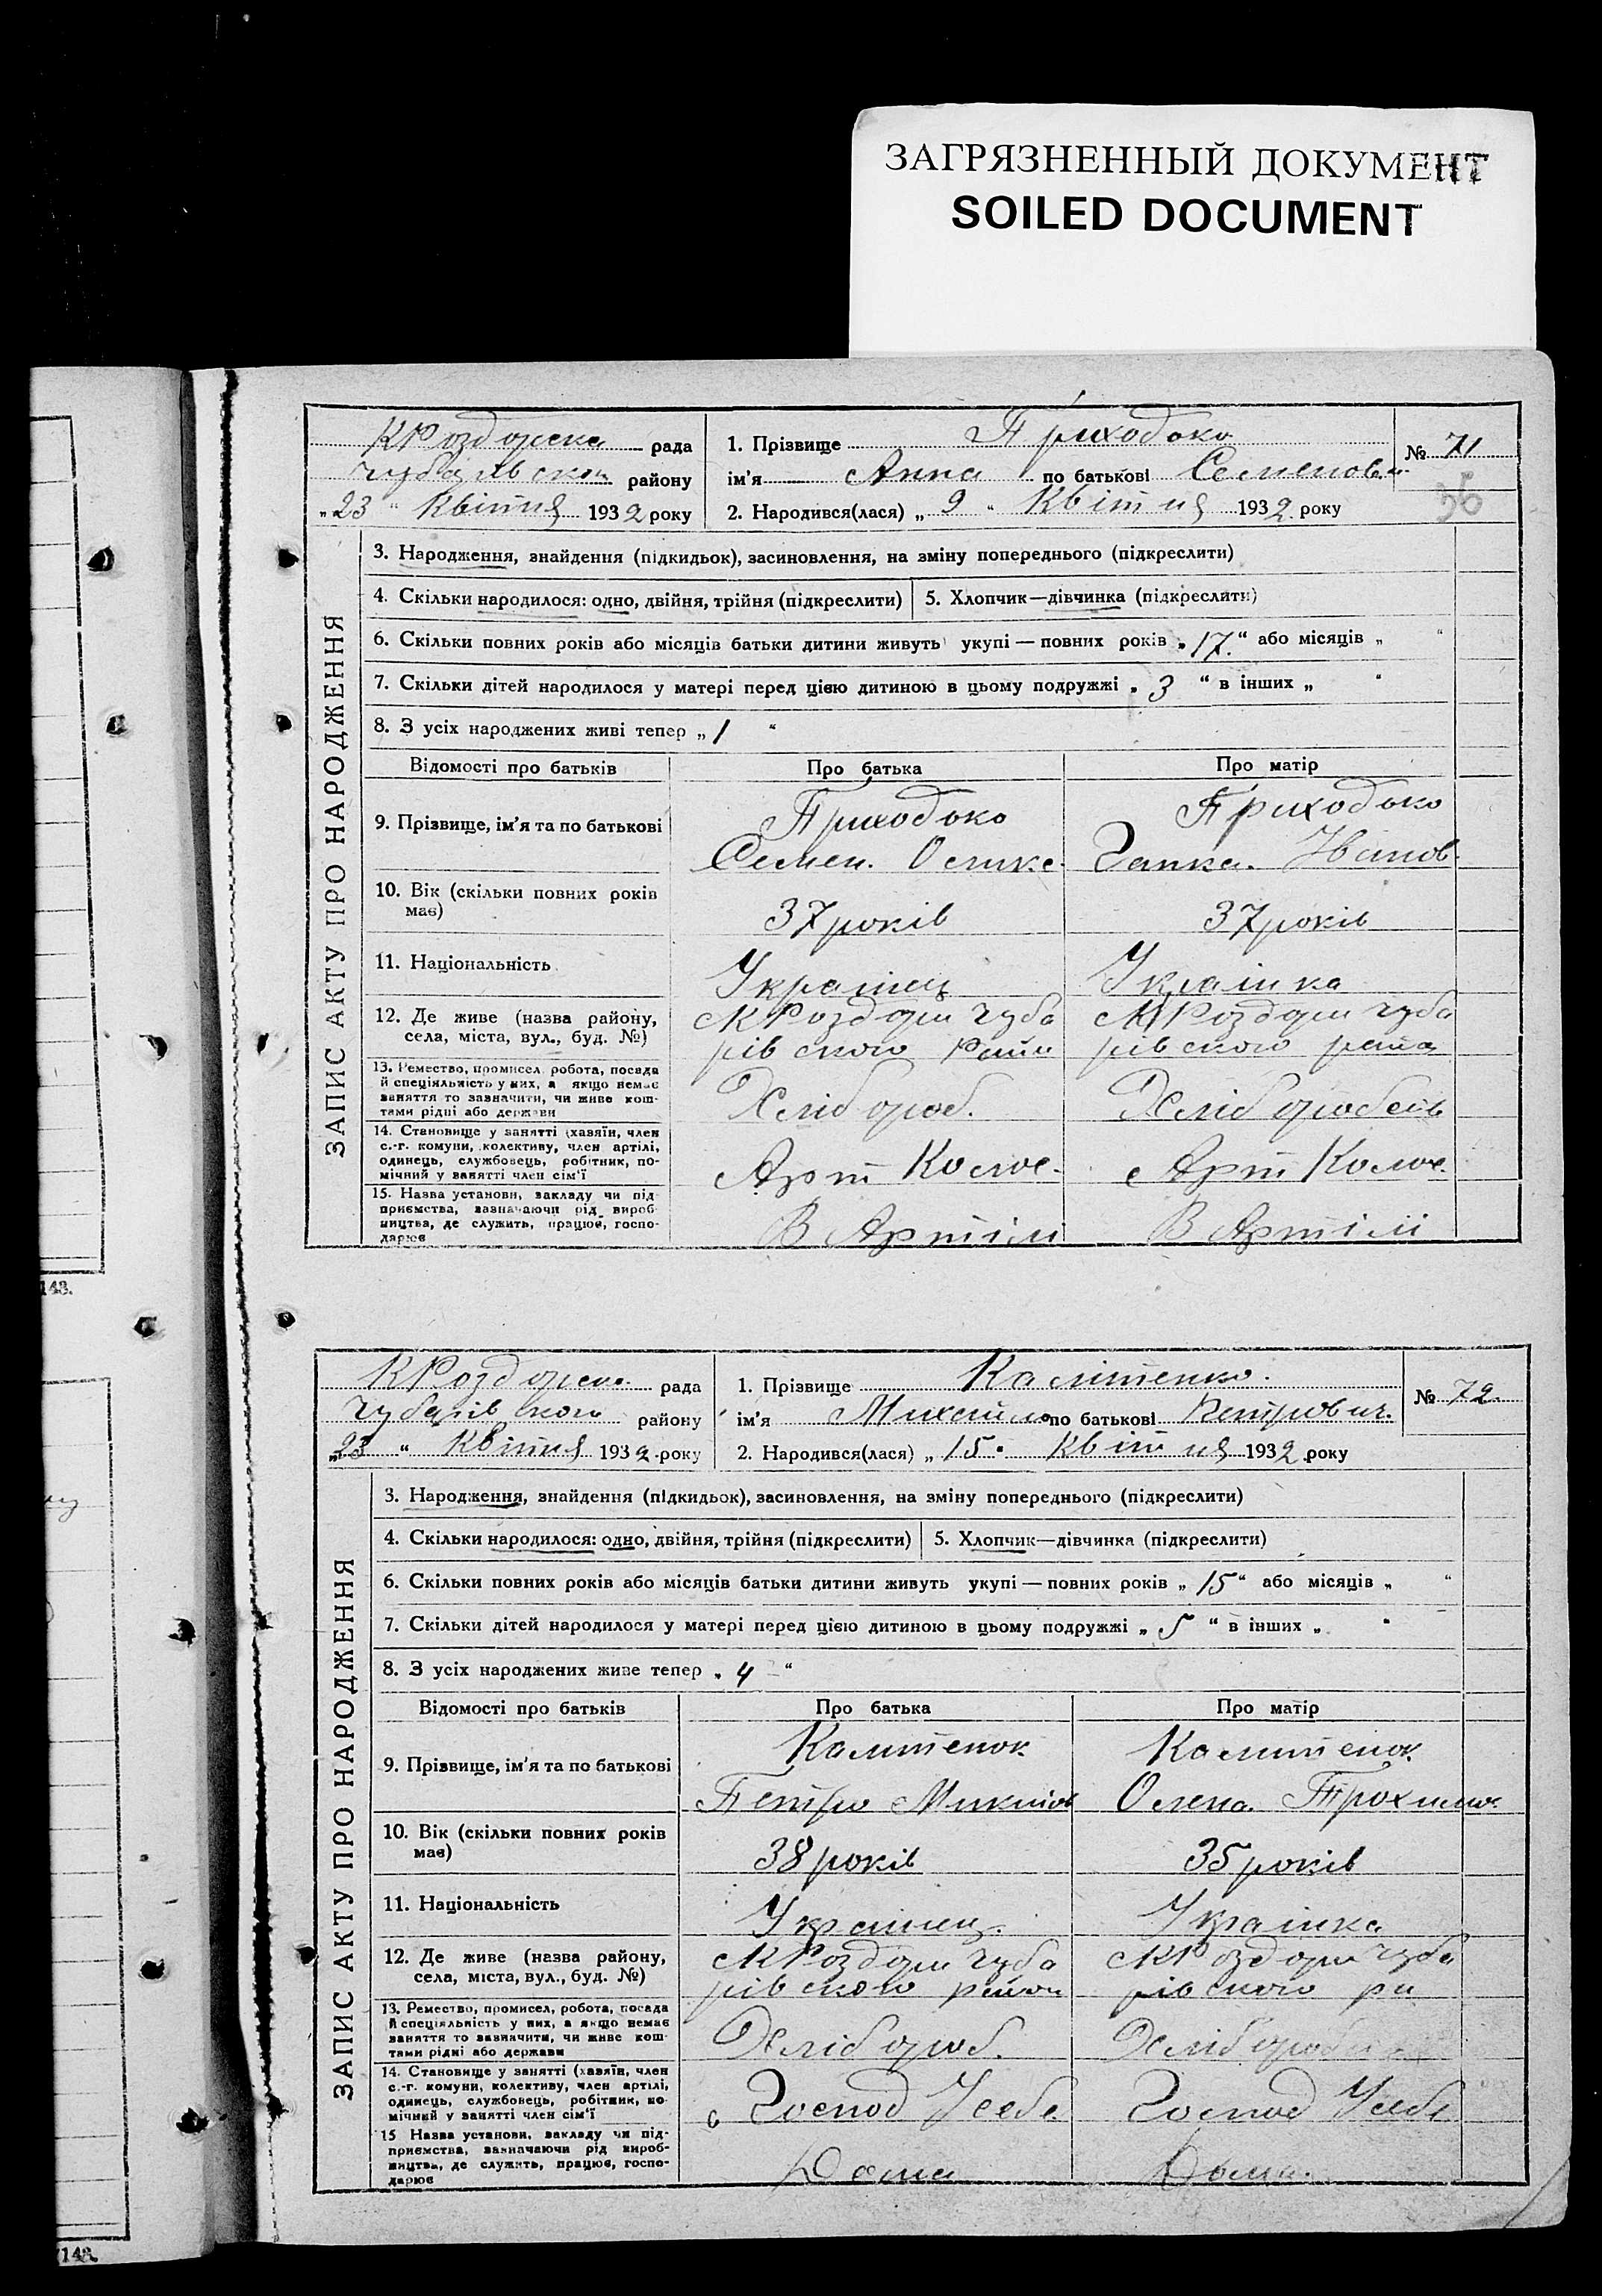 ЗАГРЯЗНЕННЫЙ ДОКУМЕНТ
SOILED DOCUMENT
рада
району
„23“ Квітня 1932 року
1. Прізвище Приходоко
№ 71
ім'я Анна по батькові Семенов
36
2. Народився(лася) „9“ Квітня 1932 року
ЗАПИС АКТУ ПРО НАРОДЖЕННЯ
3. Народження, знайдення (підкидьок), засиновлення, на зміну попереднього (підкреслити)
4. Скільки народилося: одно, двійня, трійня (підкреслити)
5. Хлопчик—дівчинка (підкреслити)
6. Скільки повних років або місяців батьки дитини живуть укупі — повних років „17“ або місяців „ “
7. Скільки дітей народилося у матері перед цією дитиною в цьому подружжі „3“ в інших „ “
8. З усіх народжених живі тепер „1“
Відомості про батьків
Про батька
Про матір
9. Прізвище, ім'я та по батькові
Приходоко
Семен.
Приходоко
Ганка. Иванов.
10. Вік (скільки повних років
має)
37 років
37 років
11. Національність
Українец
Українка
12. Де живе (назва району,
села, міста, вул., буд. №)
КРоздори Чуба
рівского
КРоздори Чуба
рівского
13. Ремество, промисел, робота, посада
й спеціяльність у них, а якщо немає
заняття то зазначити, чи живе кош-
тами рідні або держави
Хлібороб.
14. Становище у занятті (хазяїн, член
с.-г. комуни, колективу, член артілі,
одинець, службовець, робітник, по-
мічний у занятті член сім'ї
Арт
Арт
15. Назва установи, закладу чи під-
приємства, зазначаючи рід вироб-
ництва, де служить, працює, госпо-
дарює
В Артілі
В Артілі
рада
Чубарівского району
„23“ Квітня 1932 року
1. Прізвище Калітенко.
№ 72.
ім'я Михайло по батькові Петрович.
2. Народився(лася) „15“ Квітня 1932 року
ЗАПИС АКТУ ПРО НАРОДЖЕННЯ
3. Народження, знайдення (підкидьок), засиновлення, на зміну попереднього (підкреслити)
4. Скільки народилося: одно, двійня, трійня (підкреслити)
5. Хлопчик—дівчинка (підкреслити)
6. Скільки повних років або місяців батьки дитини живуть укупі — повних років „15“ або місяців „ “
7. Скільки дітей народилося у матері перед цією дитиною в цьому подружжі „5“ в інших „ “
8. З усіх народжених живе тепер „4“
Відомості про батьків
Про батька
Про матір
9. Прізвище, ім'я та по батькові
Калітенок
Петро
Калітенок
Олена.
10. Вік (скільки повних років
має)
38 років
35 років
11. Національність
Українец.
Українка
12. Де живе (назва району,
села, міста, вул., буд. №)
КРоздори Чуба
рівского район
КРоздори Чуба
рівского
13. Ремество, промисел, робота, посада
й спеціяльність у них, а якщо немає
заняття то зазначити, чи живе кош-
тами рідні або держави
Хлібороб.
14. Становище у занятті (хазяїн, член
с.-г. комуни, колективу, член артілі,
одинець, службовець, робітник, по-
мічний у занятті член сім'ї
Господ Усебе
Господ Усебе
15 Назва установи, закладу чи під-
приємства, зазначаючи рід вироб-
ництва, де служить, працює, госпо-
дарює
Дома
Дома.
143.